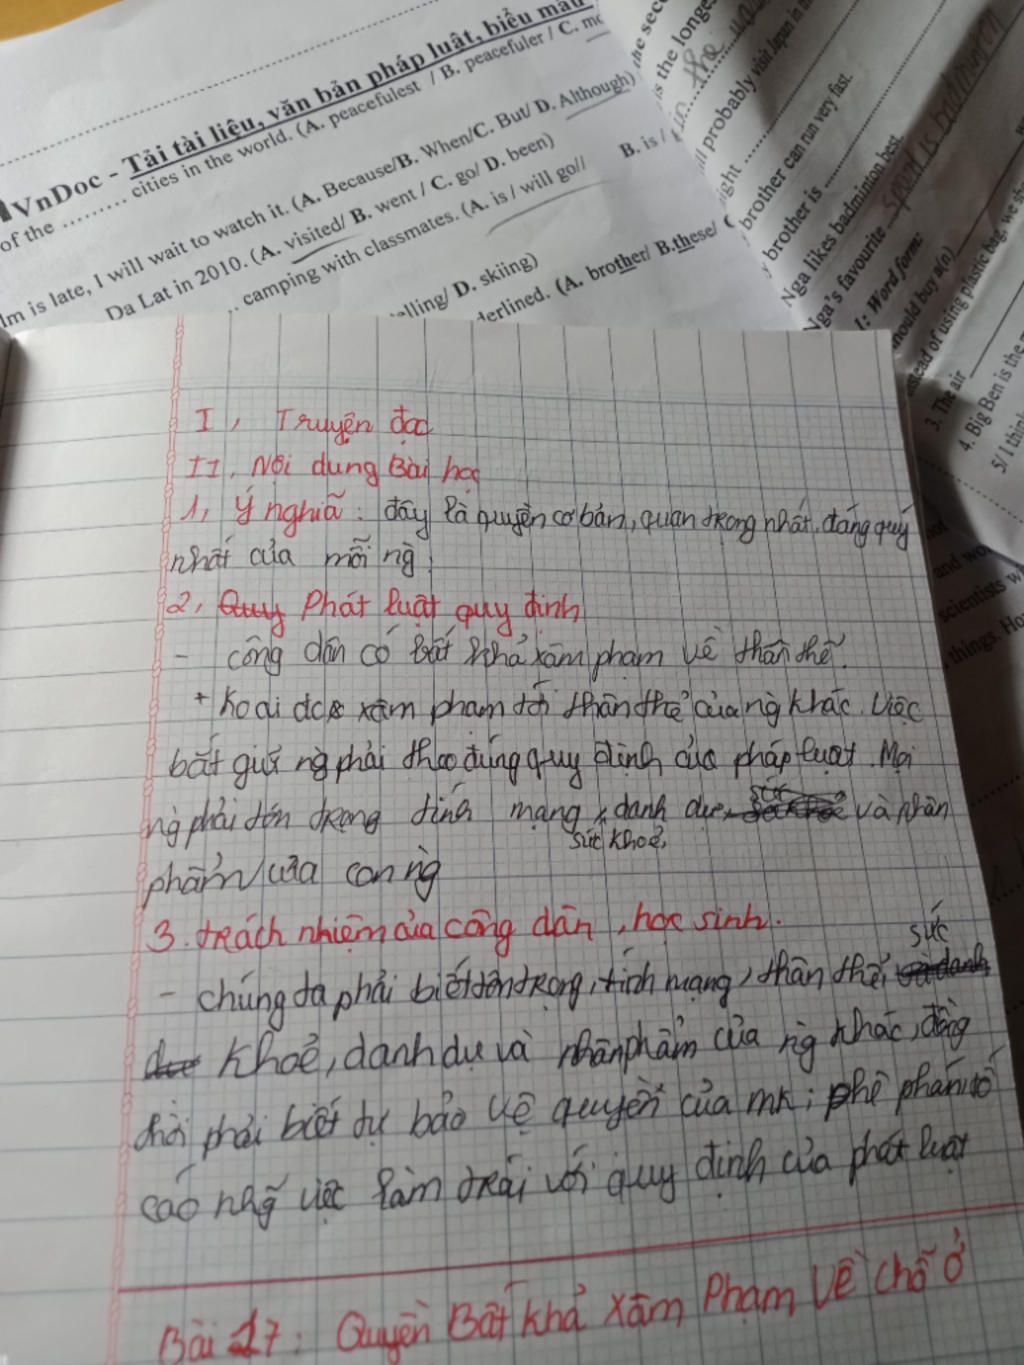 VnDoc - Tải tài liệu, văn bản pháp luật, biểu mẫu
of the ......... cities in the world. (A. peacefulest / B. peacefuler / C. mo
lm is late, I will wait to watch it. (A. Because/B. When/C. But/ D. Although)
Da Lat in 2010. (A. visited/ B. went / C. go/ D. been)
.. camping with classmates. (A. is / will go// B. is /
elling/ D. skiing)
derlined. (A. brother/ B.these/ C
the sec
is the longes
in the
ill probably visit Japan in th
ight
brother can run very fast.
y brother is
Nga likes badminton best.
Nga's favourite sport is badminton
1: Word form:
hould buy a(n)
nstead of using plastic bag, we sh
3. The air
4. Big Ben is the
5/ I think
not
and wo
scientists w
things. Ho
I, Truyện đọc
II, Nội dung Bài học
1, Ý nghiã: đây là quyền cơ bản, quan trọng nhất, đáng quý
nhất của mỗi ng
2, Quy Phát luật quy định
- công dân có bất khả xâm phạm về thân thể.
+ Ko ai dc xâm phạm tới thân thể của ng khác. Việc
bắt giữ ng phải theo đúng quy định của pháp luật. Mọi
ng phải tôn trọng tính mạng, sức khoẻ, danh dự và nhân
phẩm của con ng
3. trách nhiệm của công dân, học sinh.
- chúng ta phải biết tôn trọng, tính mạng, thân thể, sức
khoẻ, danh dự và nhân phẩm của ng khác, đồng
thời phải biết tự bảo vệ quyền của mk; phê phán tố
cáo nhg việc làm trái với quy định của phát luật
Bài 17: Quyền Bất khả xâm Phạm Về chỗ ở